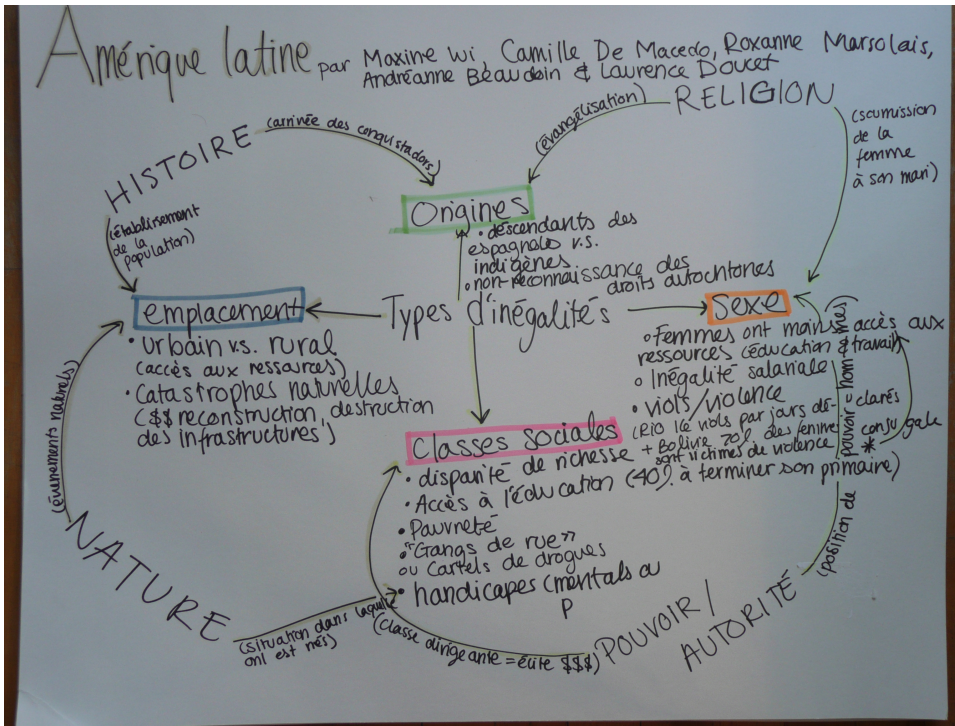 Amérique latine par Maxine Wi, Camille De Macedo, Roxanne Marsolais,
Andréanne Beaudoin & Laurence Doucet
RELIGION
(évangélisation)
(soumission
de la
femme
à son mari)
HISTOIRE
(arrivée des conquistadors)
(établissement
de la
population)
Origines
• descendants des
espagnols v.s.
indigènes
• non-reconnaissance des
droits autochtones
Types d'inégalités
emplacement
• urbain v.s. rural
(accès aux ressources)
• Catastrophes naturelles
($$ reconstruction, destruction
des infrastructures)
Sexe
• Femmes ont moins accès aux
ressources (éducation & travail)
• Inégalité salariale
• viols/violence
(Rio 16 viols par jours dé-
clarés
+ Bolivie 70% des femmes
sont victimes de violence
conjugale
*
Classes sociales
• disparité de richesse
• Accès à l'éducation (40% à terminer son primaire)
• Pauvreté
• "Gangs de rue"
ou Cartels de drogues
• handicapes (mentals ou
p
(événements naturels)
NATURE
(situation dans laquelle
on est nés)
(classe dirigeante = élite $$$)
POUVOIR /
AUTORITÉ
(position de pouvoir = hommes)